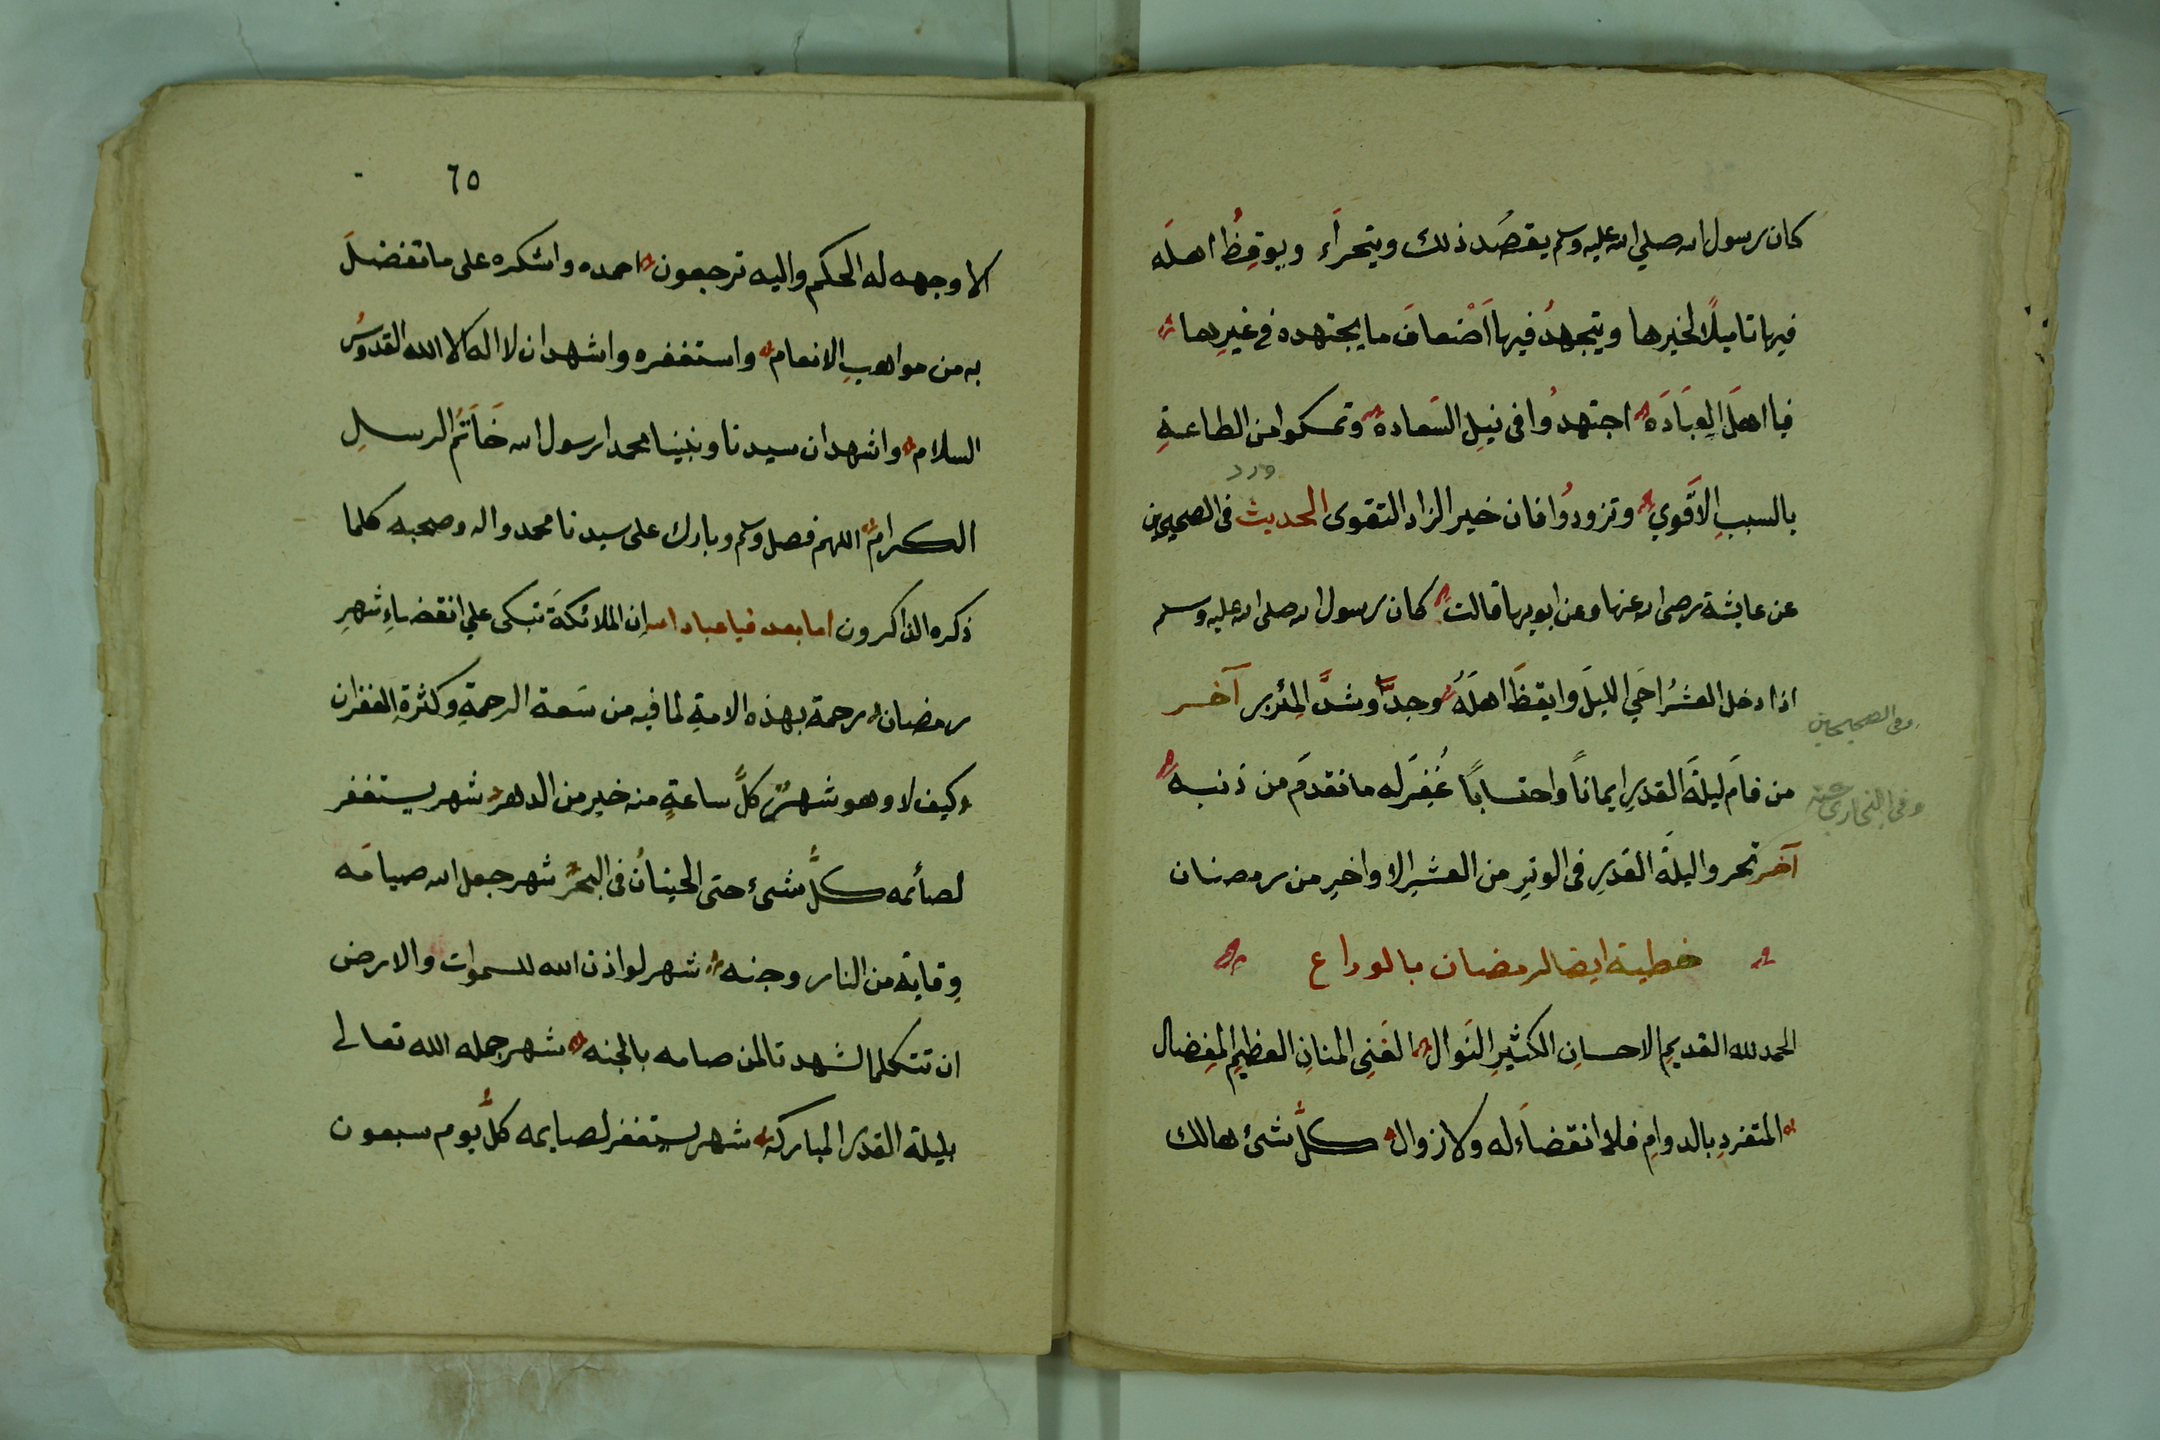 كان رسول الله صلي الله عليه وسلم يقصُد ذلك ويتحراَء ويوقِظُ اهلَه
فيها تاميلًا لخيرها ويتجهدُ فيها اَضْعافَ ما يجتهده في غيرِها
فيا اهلَ العِبَادَه اجتهدُوا في نيلِ السَعاده وتمسكوا من الطاعةِ
بالسببِ الاَقَوي وتزودُوا فان خير الزاد التقوى الحديث ورد في الصحيحين
عن عايشة رضى الله عنها وعن ابويها قالت كان رسول الله صلى الله عليه وسلم
اذا دخل العشرُ احَي الليلَ وايقظَ اهلَهُ وجدَّ وشدَّ المِئزر آخر
وفى الصحيحين
من قامَ ليلةَ القدرِ ايمانًا واحتسابًا غُفِرَله ما تقدمَ من ذنبه
وفى البخاري
آخر تحروا ليلةَ القدرِ فى الوترِ من العشرِ الاواخرِ من رمضان
خطبة ايضا لرمضان بالوداع
الحمد لله القديمِ الاحسانِ الكثيرِ النَوال الغَنِى المنانِ العظيمِ المِفضال
المتفردِ بالدوامِ فلا انقضاَءله ولا زوال كلُّ شئ هالك
٦٥
الا وجهه له الحكم واليه ترجعون احمده واشكره على ما تفضلَ
به من مواهبِ الانعام واستغفره واشهد ان لا اله الا الله القدوسُ
السلام واشهد ان سيدنا ونبينا محمدا رسول الله خَاتَمُ الرسلِ
الكرام اللهم فصل وسلم وبارك على سيدنا محمد واله وصحبه كلما
ذكره الذاكرون اما بعد فيا عباد الله اِن الملائكةَ تبكى علي انقضاءِ شهرِ
رمضان رحمة بهذه الامةِ لما فيه من سَعة الرحمةِ وكثرةِ الغفران
وكيف لا وهو شهرٌ كلُّ ساعةٍ منه خير من الدهر شهر يستغفر
لصائمه كلُّ شىء حتى الحيتانُ فى البحر شهر جعل الله صيامَه
وِقايةً من النار وجنه شهر لو اذن الله للسموات والارض
ان تتكلما لشهدتا لمن صامه بالجنه شهر جمله الله تعالى
بليلة القدر المباركه شهر يستغفر لصايمه كلَّ يوم سبعون